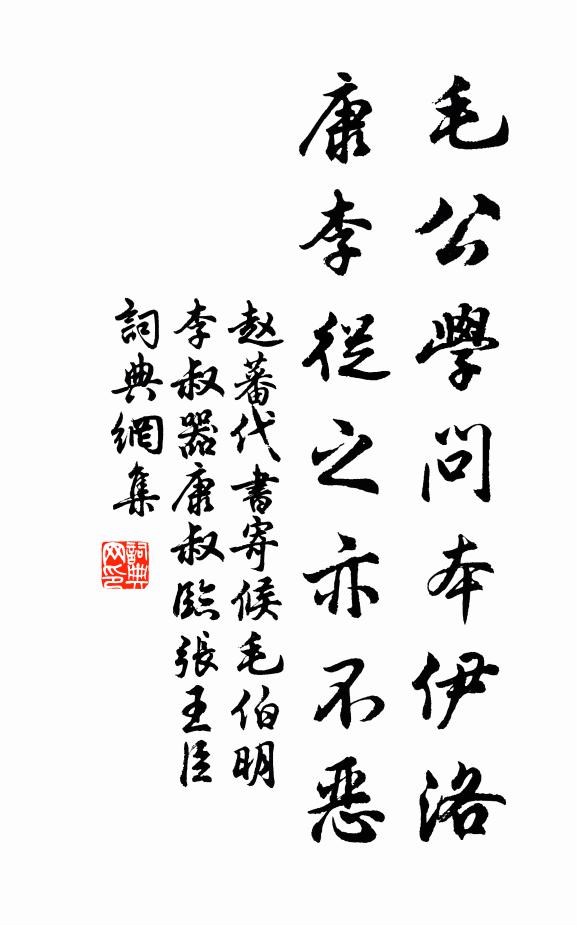 毛公學問本伊洛
康李從之亦不惡
赵蕃代書寄候毛伯明
李叔器康叔臨張王臣
詞典網集
詞典
网印